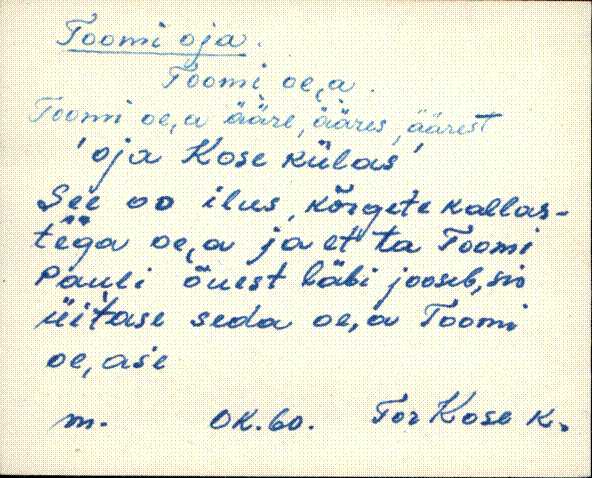 Toomi oja.
Toomi oe,a.
Toomi oe,a ääre, ääres, äärest
'oja Kose külas'
See oo ilus, kõrgete kallas-
tega oe,a ja et ta Toomi
Pauli õuest läbi jooseb, siis
üitase seda oe,a Toomi
oe,ase
m. OK.60. Tor Kose k.